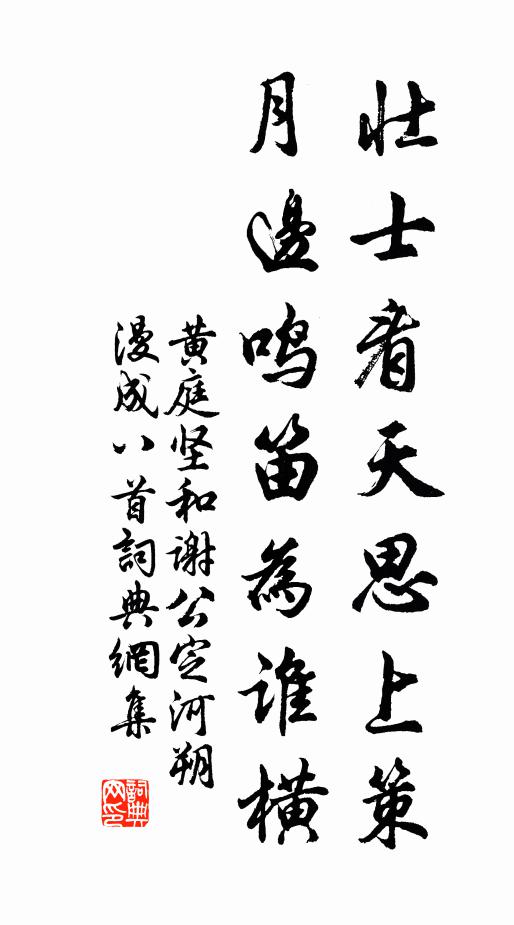 壮士看天思上策
月邊鸣笛為谁横
黄庭坚和谢公定河朔
漫成八首詞典網集
詞典網印